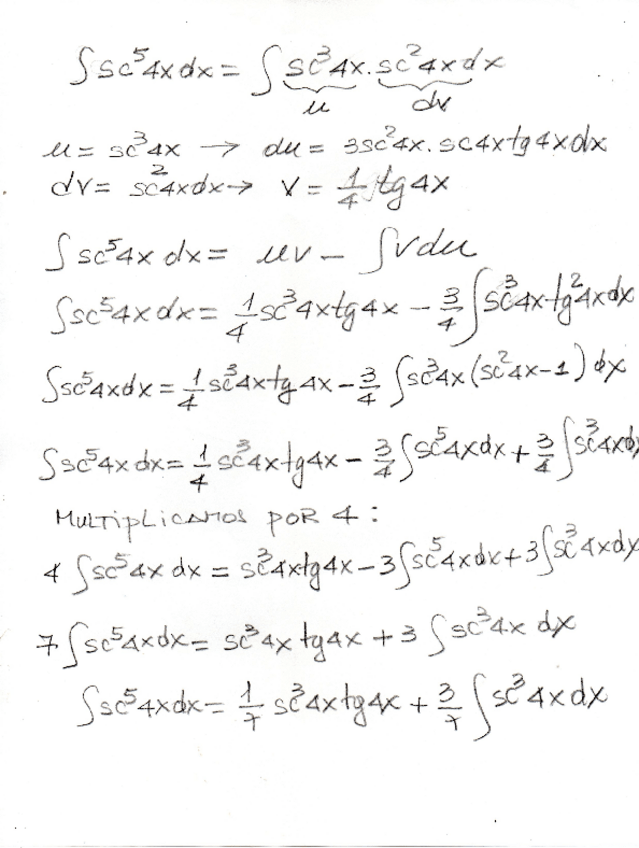 ∫sc⁵4x dx = ∫sc³4x . sc²4x dx
u dv
u = sc³4x → du = 3sc²4x . sc4x tg4x dx
dv = sc²4x dx → v = 1/4 tg4x
∫sc⁵4x dx = uv − ∫v du
∫sc⁵4x dx = 1/4 sc³4x tg4x − 3/4 ∫sc³4x·tg²4x dx
∫sc⁵4x dx = 1/4 sc³4x tg4x − 3/4 ∫sc³4x (sc²4x−1) dx
∫sc⁵4x dx = 1/4 sc³4x tg4x − 3/4 ∫sc⁵4x dx + 3/4 ∫sc³4x dx
MULTIPLICAMOS POR 4 :
4 ∫sc⁵4x dx = sc³4x tg4x − 3∫sc⁵4x dx + 3∫sc³4x dx
7 ∫sc⁵4x dx = sc³4x tg4x + 3 ∫sc³4x dx
∫sc⁵4x dx = 1/7 sc³4x tg4x + 3/7 ∫sc³4x dx